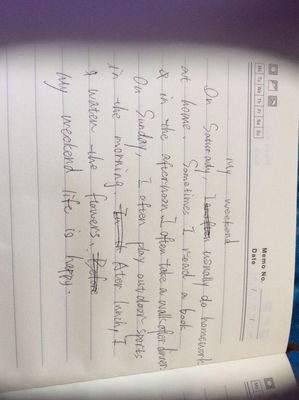 Memo No.
Date
Mo Tu We Th Fr Sa Su
My weekend
On Saturady, I often usually do homework
at home. Sometimes I read a book
& in the afternoon. I often take a walk after dinner.
On Sunday, I often play outdoor sports
in the morning. Ater lunch, I
& water the flowers. Before
My weekend life is happy.